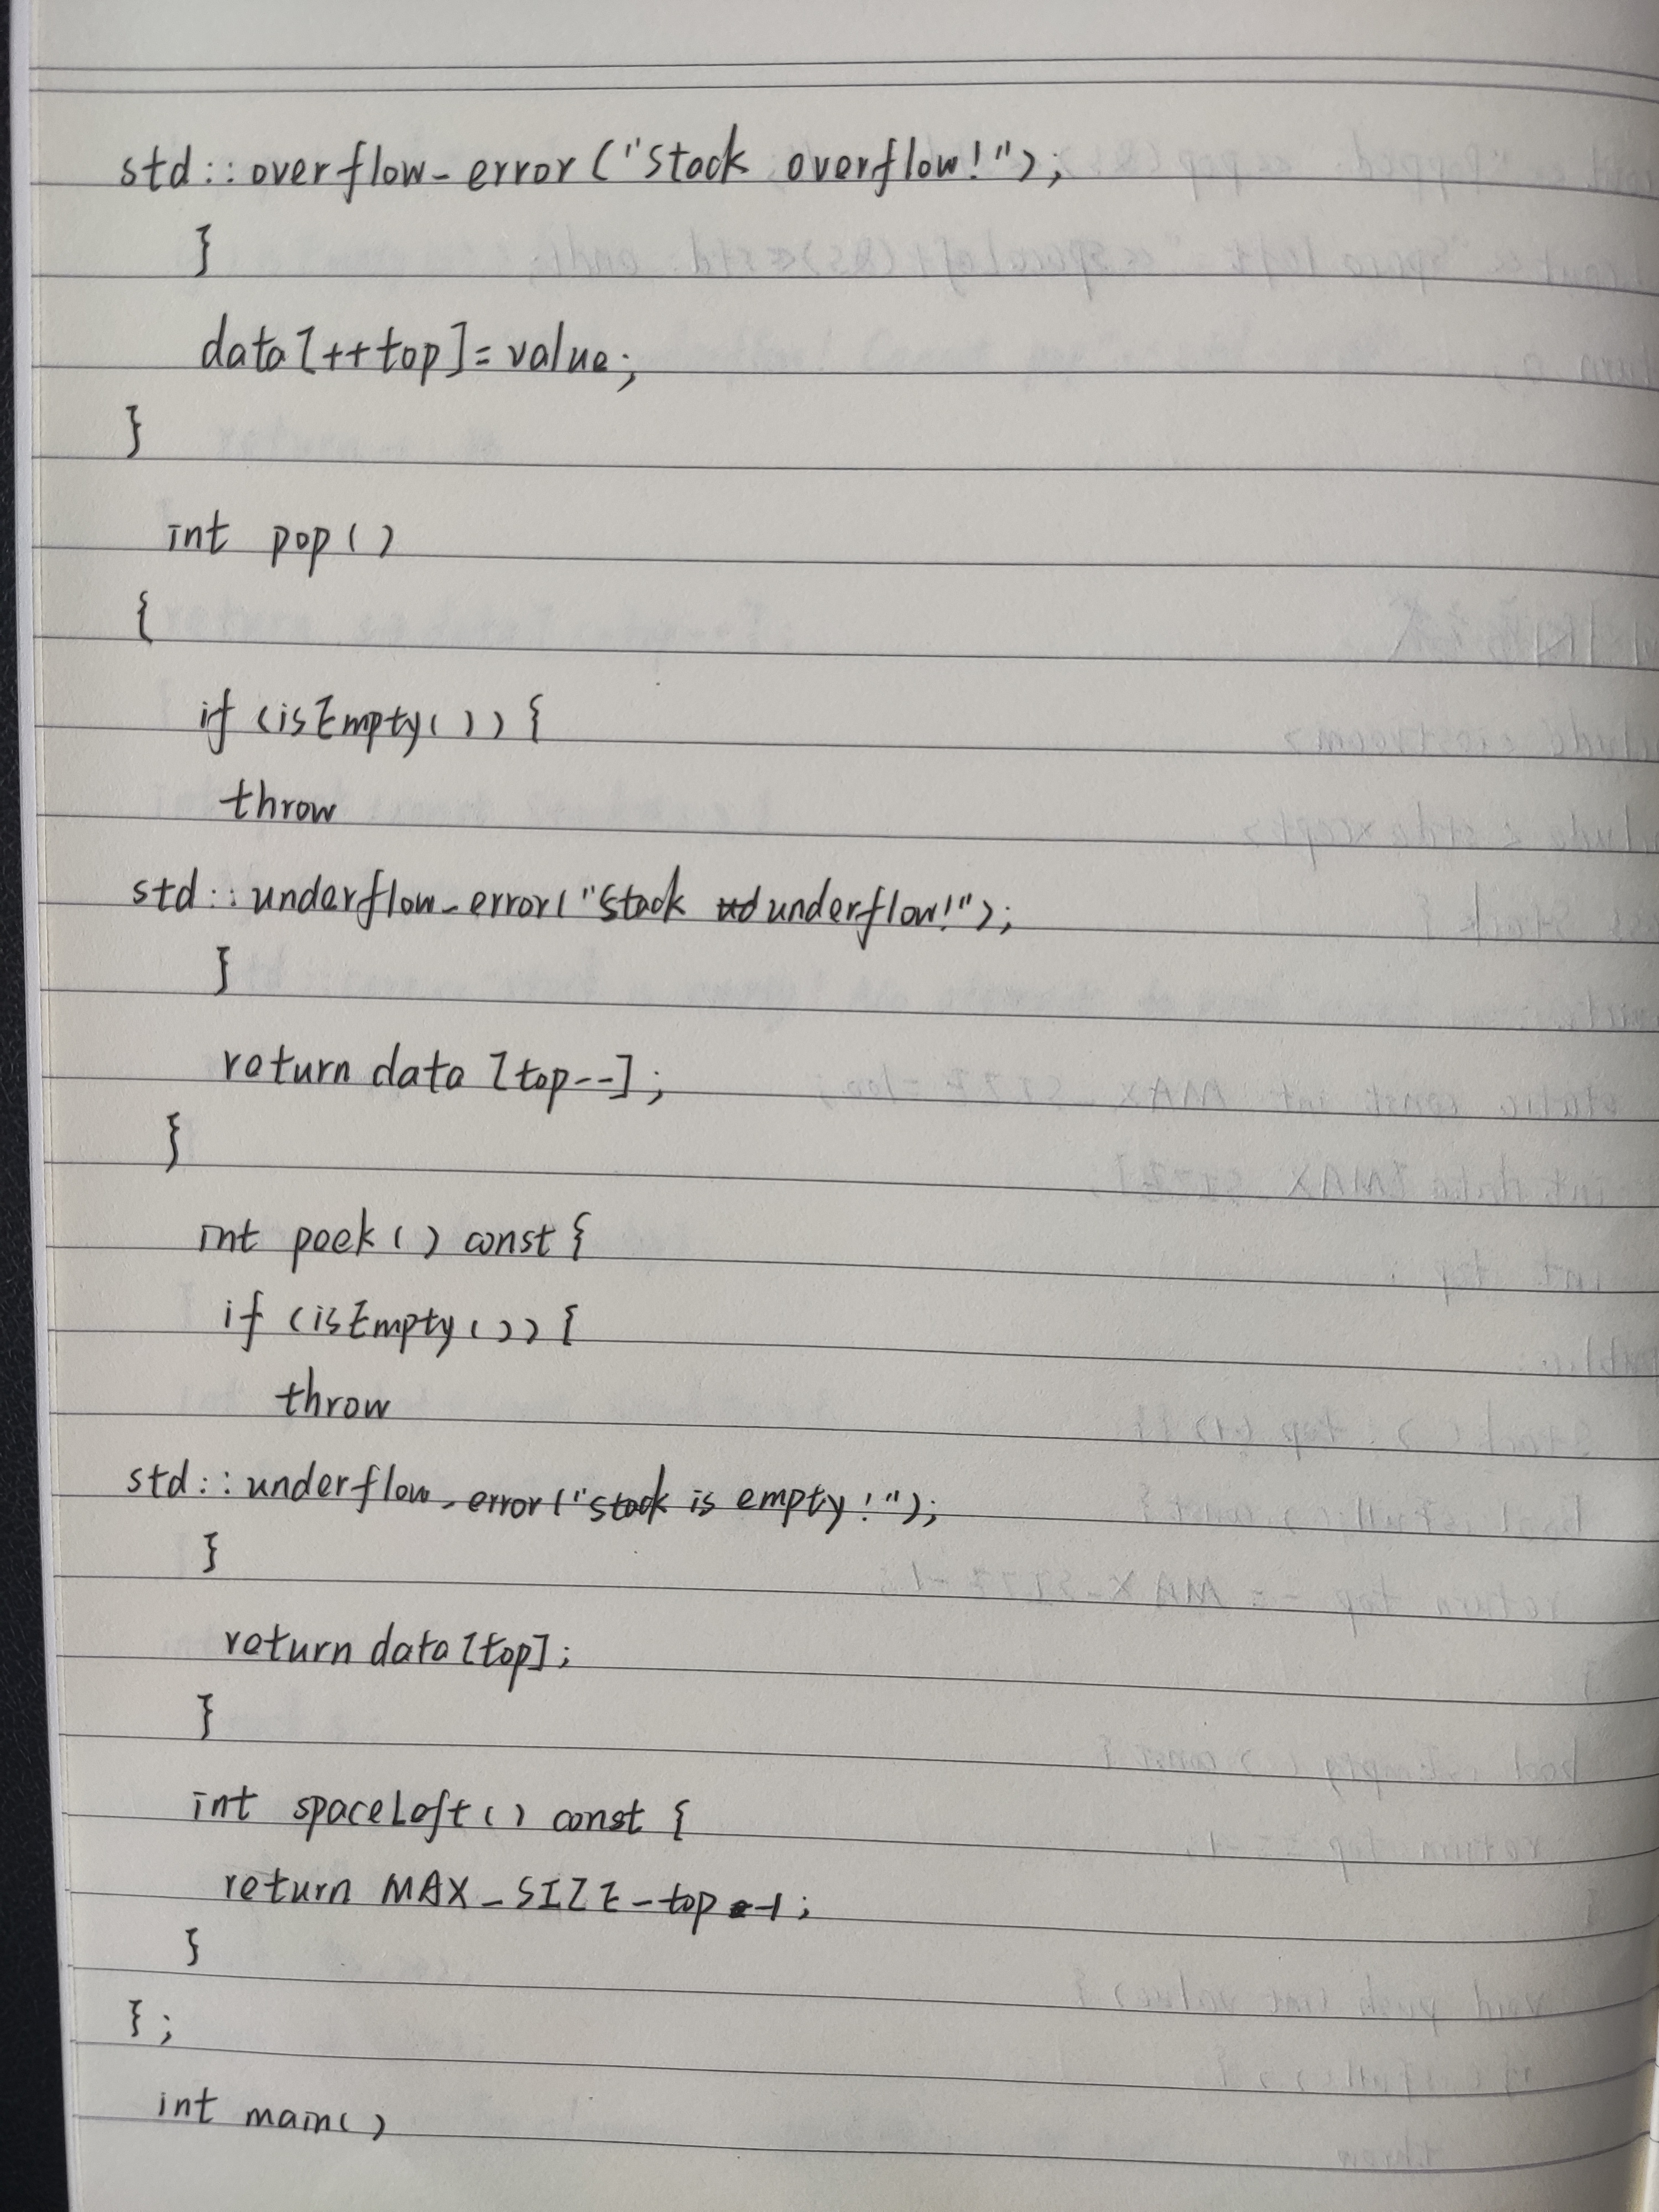 std::overflow_error("Stack overflow!");
}
data[++top]=value;
}
int pop()
{
if (isEmpty()) {
throw
std::underflow_error("Stack underflow!");
}
return data [top--];
}
int peek() const {
if (isEmpty()) {
throw
std::underflow_error("stack is empty!");
}
return data[top];
}
int spaceLeft() const {
return MAX_SIZE-top-1;
}
};
int main()